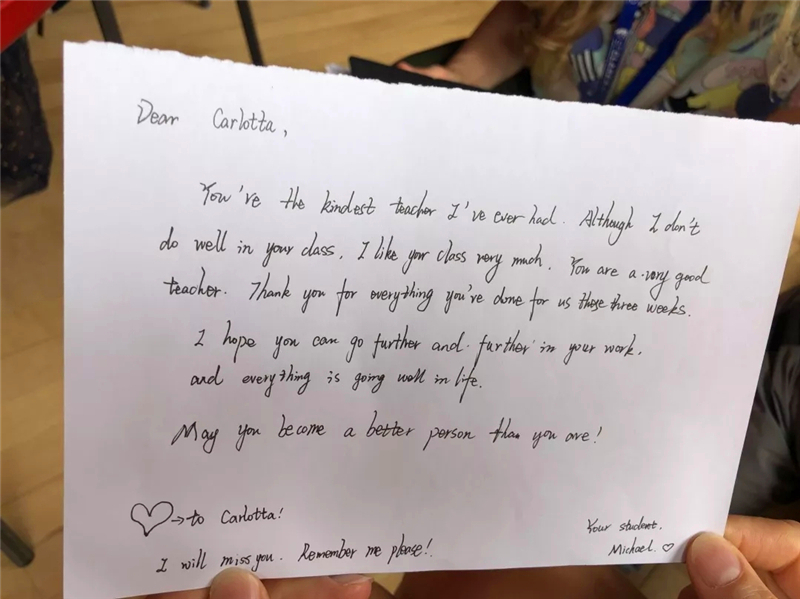 Dear Carlotta,
You've the kindest teacher I've ever had. Although I don't
do well in your class, I like your class very much. You are a very good
teacher. Thank you for everything you've done for us these three weeks.
I hope you can go further and further in your work,
and everything is going well in life.
May you become a better person than you are!
♡→to Carlotta!
I will miss you. Remember me please!
Your student,
Michael. ♡